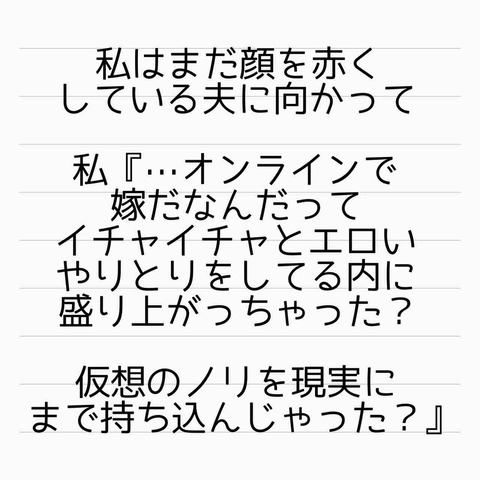 私はまだ顔を赤く
している夫に向かって
私『…オンラインで
嫁だなんだって
イチャイチャとエロい
やりとりをしてる内に
盛り上がっちゃった？
仮想のノリを現実に
まで持ち込んじゃった？』